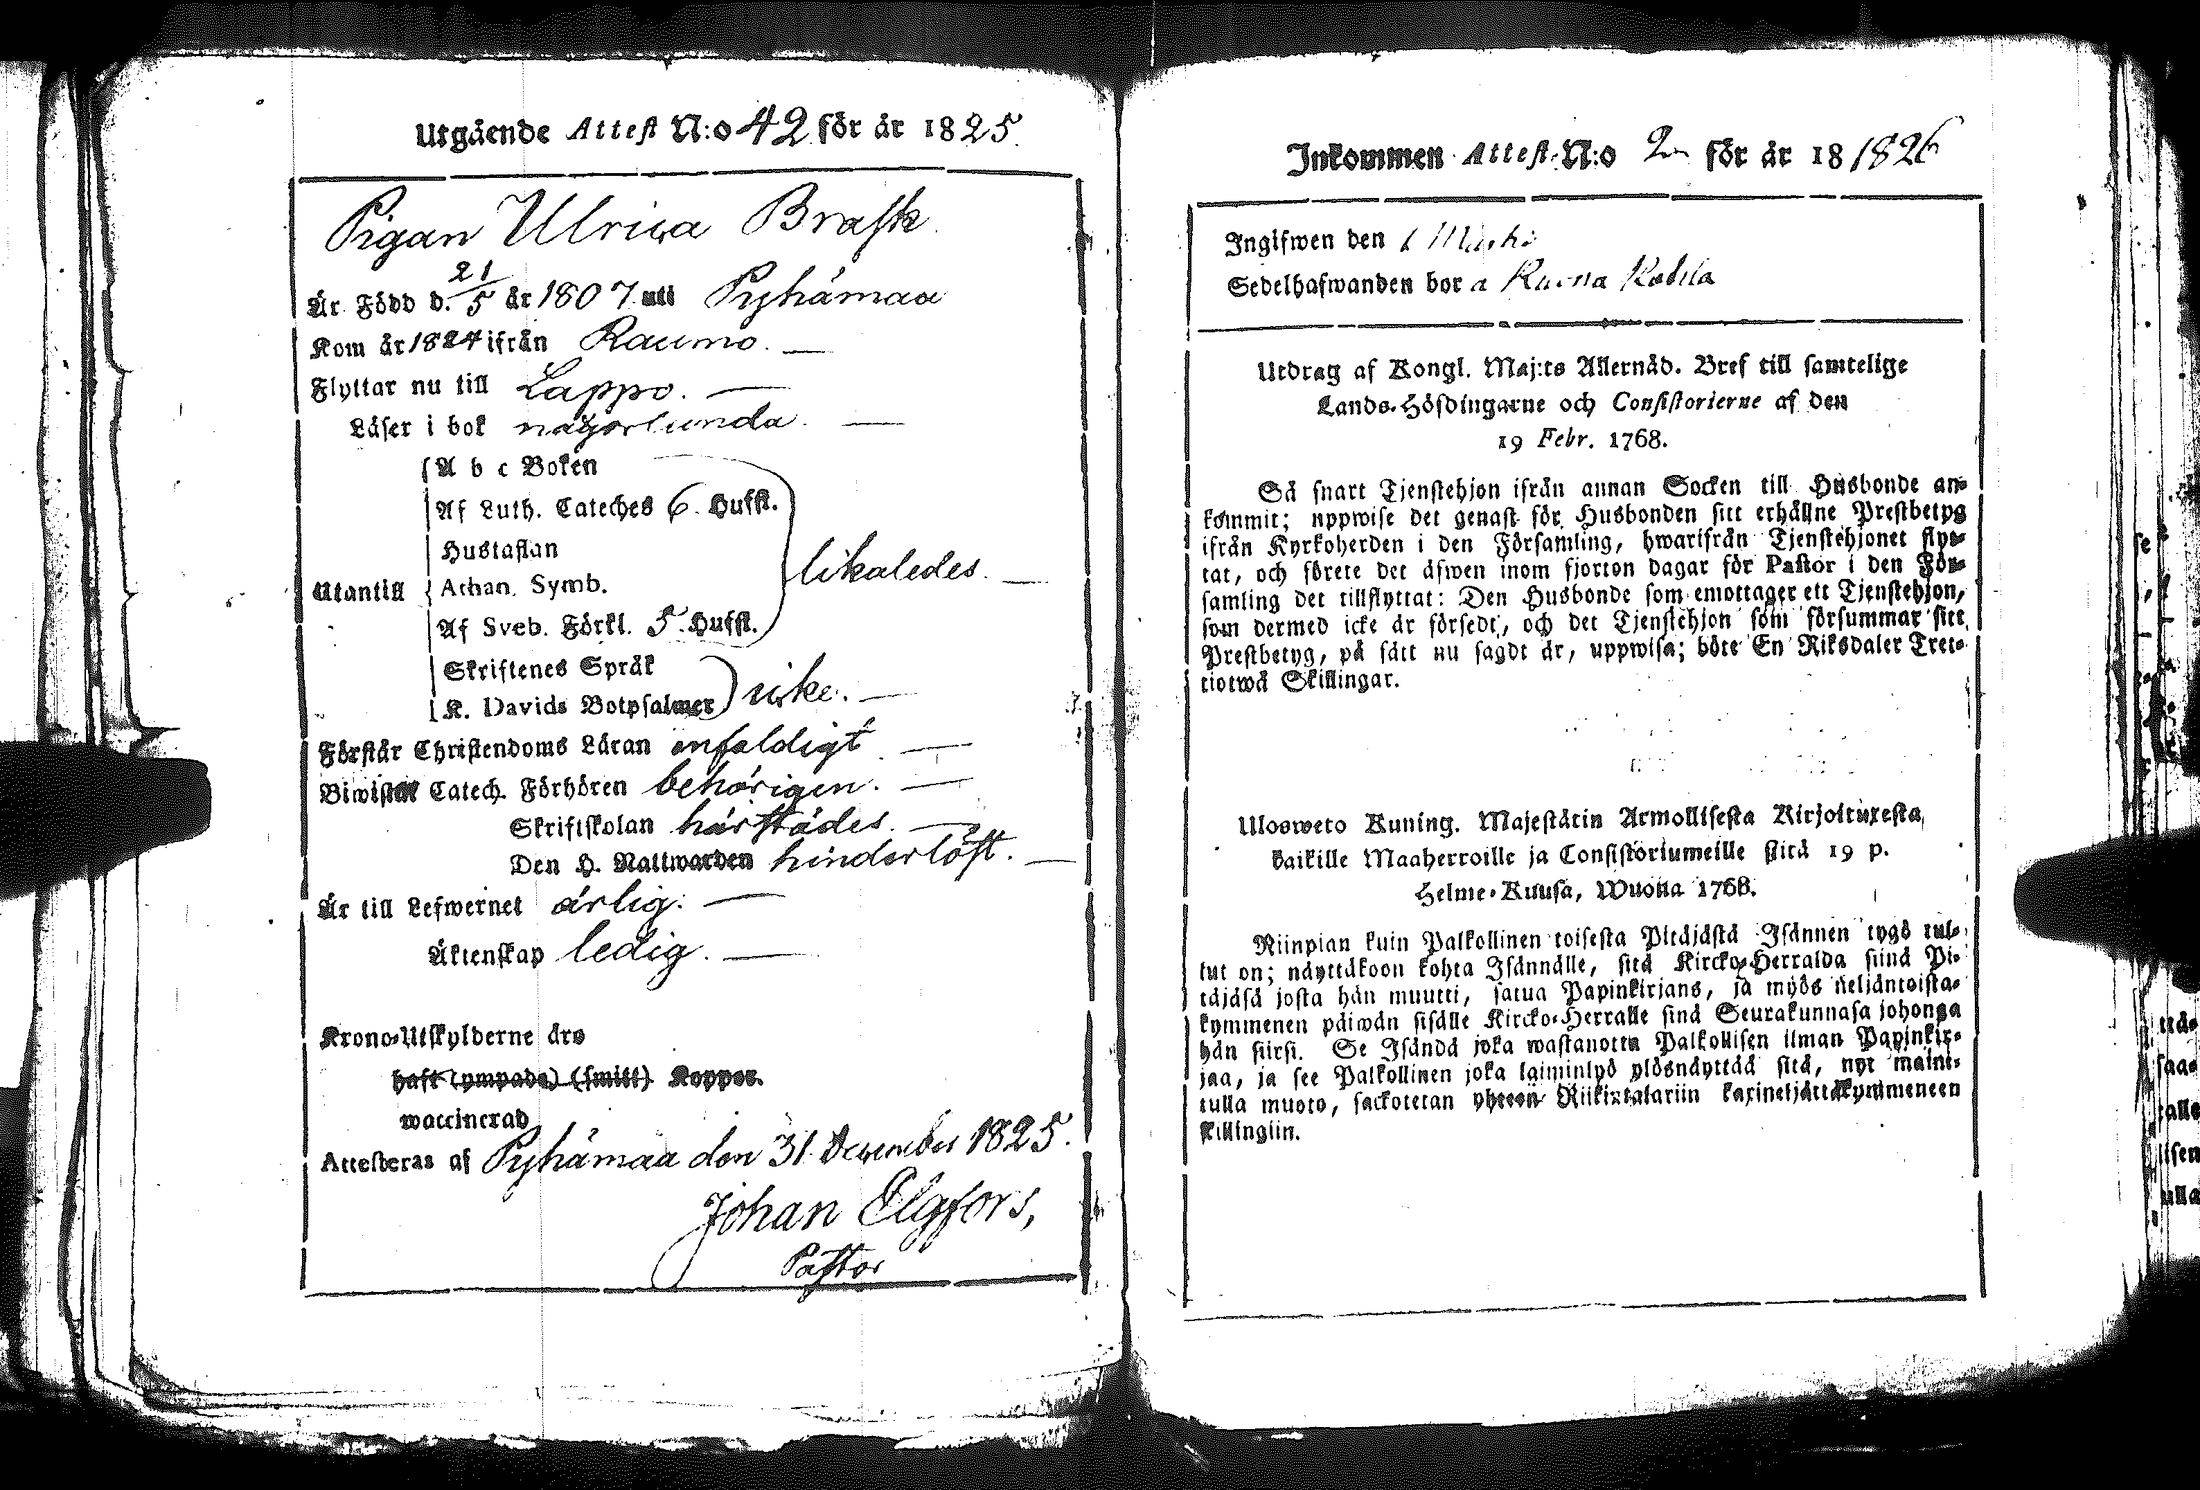 Utgående Attest N:o 42 för år 1825.
Pigan Ulrica Brask.
Är Född d. 21/5 år 1807 uti Pyhämaa
Kom år 1824 ifrån Raumo. —
Flyttar nu till Lappo. —
Läser i bok någorlunda. —
A b c Boken
Af Luth. Cateches 6. Hufst.
Hustaflan
likaledes. —
Utantill Athan. Symb.
Af Sveb. Förkl. 5. Hufst.
Skriftenes Språk
K. Davids Botpsalmer icke. —
Förstår Christendoms Läran enfaldigt —
Biwistat Catech. Förhören behörigen. —
Skriftskolan härstädes. —
Den H. Nattwarden hinderlöst. —
Är till Lefwernet ärlig. —
Äktenskap ledig. —
Krono-Utskylderne äro
haft (ympade) (smitt) Koppor.
waccinerad
Attesteras af Pyhämaa den 31 December 1825.
Johan Elgfors,
Pastor
Inkommen Attest N:o 2 för år 18 1826
Ingifwen den 1 Martii
Sedelhafwanden bor a
Utdrag af Kongl. Maj:ts Allernåd. Bref till samtelige
Lands-Höfdingarne och Consistorierne af den
19 Febr. 1768.
Så snart Tjenstehjon ifrån annan Socken till Husbonde an-
kommit; uppwise det genast för Husbonden sitt erhållne Prestbetyg
ifrån Kyrkoherden i den Församling, hwarifrån Tjenstehjonet flyt-
tat, och förete det äfwen inom fjorton dagar för Pastor i den För-
samling det tillflyttat: Den Husbonde som emottager ett Tjenstehjon,
som dermed icke är försedt, och det Tjenstehjon som försummar sitt
Prestbetyg, på sätt nu sagdt är, uppwisa; böte En Riksdaler Tret-
tiotwå Skillingar.
Ulosweto Kuning. Majestätin Armollisesta Kirjoituxesta,
kaikille Maaherroille ja Consistoriumeille siitä 19 p.
Helme-Kuusa, Wuonna 1768.
Niinpian kuin Palkollinen toisesta Pitäjästä Isännen tygö tul-
lut on; näyttäkoon kohta Isännälle, sitä Kircko-Herralda siinä Pi-
täjäsä josta hän muutti, satua Papinkirjans, ja myös neljäntoista-
kymmenen päiwän sisälle Kircko-Herralle sinä Seurakunnasa johonga
hän siirsi. Se Isändä joka wastanotta Palkollisen ilman Papinkir-
jaa, ja see Palkollinen joka laiminlyö ylösnäyttää sitä, nyt maini-
tulla muoto, sackotetan yhteen Riikixtalariin kaxineljättäkymmeneen
Killingiin.